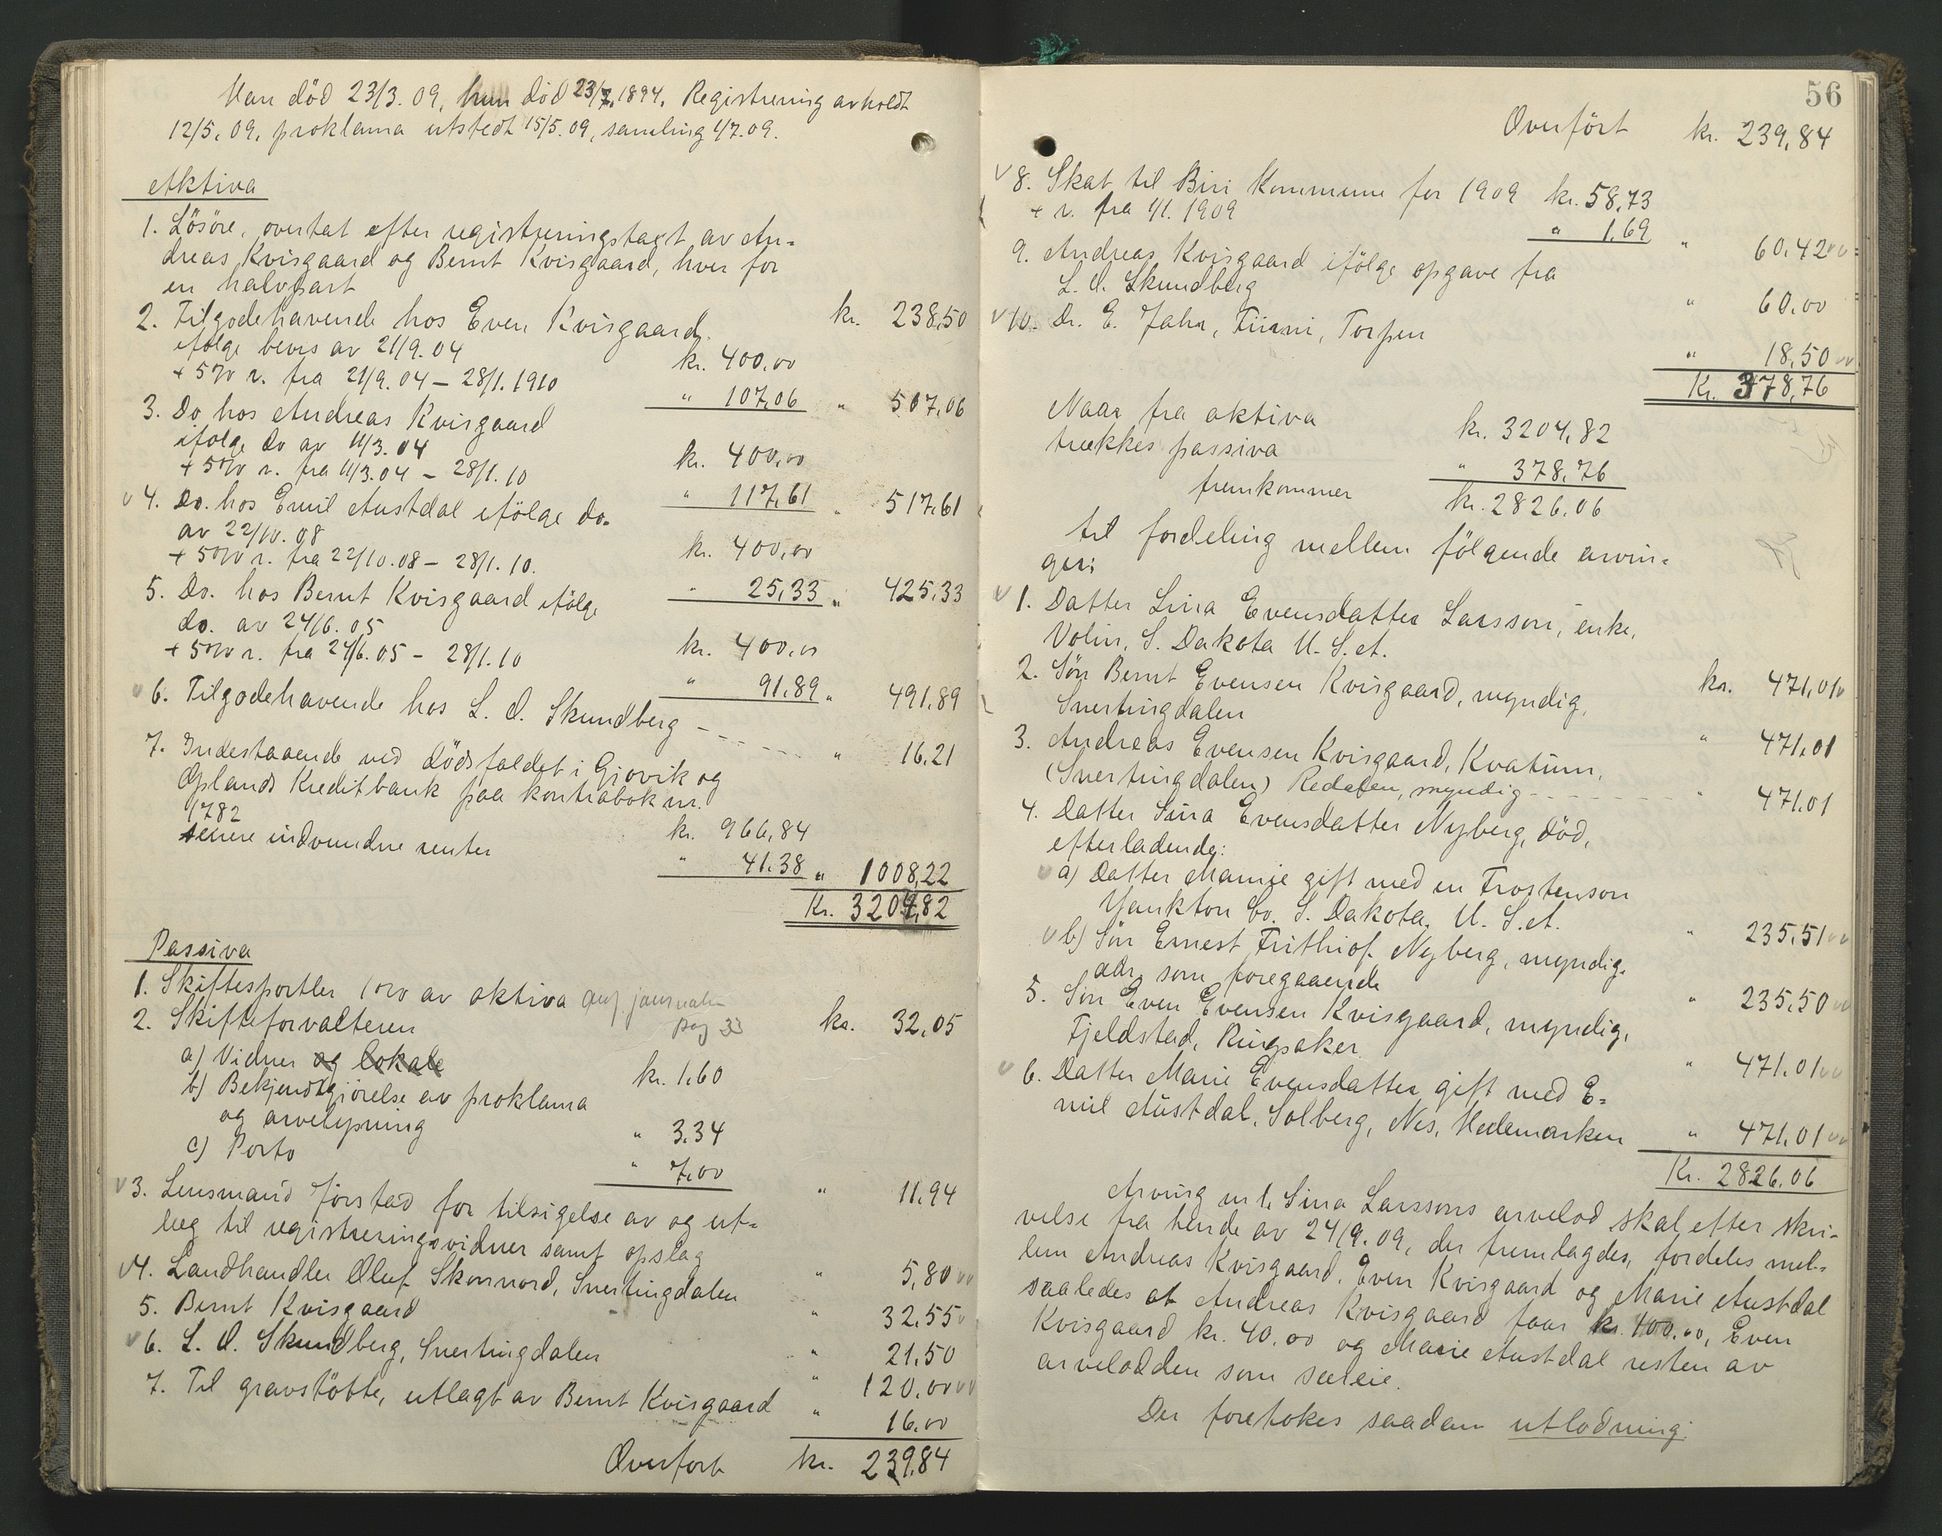 Han död 23/3. 09, hun död 23/7. 1894. Registrering avholdt
12/5. 09, proklama utstedt 15/5. 09, samling 1/7. 09.
Aktiva
1. Lösöre, overtat efter registreringstagt av An=
dreas Kvisgaard og Bernt Kvisgaard, hver for
en halvpart kr. 238,50
2. Tilgodehavende hos Even Kvisgaard
ifölge bevis av 21/9. 04 kr. 400,00
+ 5% r. fra 21/9. 04 – 28/1. 1910 " 107,06 " 507,06
3. Do hos Andreas Kvisgaard
ifölge do av 11/3. 04 kr. 400,00
+ 5% r. fra 11/3. 04 – 28/1. 10 " 117,61 " 517,61
4. Do. hos Emil Austdal ifölge do.
av 22/10. 08 kr. 400,00
+ 5% r. fra 22/10. 08 – 28/1. 10. " 25,33 " 425,33
5. Do. hos Bernt Kvisgaard ifölge
do. av 24/6. 05 kr. 400,00
+ 5% r. fra 24/6. 05 – 28/1. 10 " 91,89 " 491,89
6. Tilgodehavende hos L. O. Skundberg " 16,21
7. Indestaaende ved dödsfaldet i Gjovik og
Oplands Kreditbank paa kontrabok nr.
1782 kr. 966,84
senere indvundne renter " 41,38 " 1008,22
Kr. 3204,82
Passiva
1. Skiftesportler 1% av aktiva journalen pag 33 kr. 32,05
2. Skifteforvalteren
a) Vidner og lokale kr. 1,60
b) Bekjendtgjörelse av proklama
og arvelysning " 3,34
c) Porto " 7,00 " 11,94
3. Lensmand Jörstad for tilsigelse av og ut=
læg til registreringsvidner samt opslag " 5,80
4. Landhandler Oluf Skonnord, Snertingdalen " 32,55
5. Bernt Kvisgaard " 21,50
6. L. O. Skundberg, Snertingdalen " 120,00
7. Til gravstötte, utlagt av Bernt Kvisgaard " 16,00
Overfört kr. 239,84
56
Overfört kr. 239,84
8. Skat til Biri Kommune for 1909 kr. 58,73
+ r. fra 1/1. 1909 " 1,69 " 60,42
9. Andreas Kvisgaard ifölge opgave fra
L. O. Skundberg " 60,00
10. Dr. E. Jahr, Torpen " 18,50
Kr. 378,76
Naar fra aktiva kr. 3204,82
trækkes passiva " 378,76
fremkommer kr. 2826,06
til fordeling mellem fölgende arvin=
ger:
1. Datter Sina Evensdatter Larsson, enke,
Volin, S. Dakota U. S. A. kr. 471,01
2. Sön Bernt Evensen Kvisgaard, myndig,
Snertingdalen " 471,01
3. Andreas Evensen Kvisgaard, Kvatum,
(Snertingdalen) Redalen, myndig " 471,01
4. Datter Lina Evensdatter Nyberg, död,
efterladende:
a) Datter Mamie gift med en Frostenson
Yankton Co. S. Dakota, U. S. A. " 235,51
b) Sön Ernest Frithiof Nyberg, myndig,
adr. som foregaaende " 235,50
5. Sön Even Evensen Kvisgaard, myndig,
Fjeldstad, Ringsaker " 471,01
6. Datter Marie Evensdatter gift med E=
mil Austdal, Solberg, Nes, Hedemarken " 471,01
Kr. 2826,06
Arving nr 1, Sina Larssons arvelod skal efter skri=
velse fra hende av 24/9. 09, der fremlagdes, fordeles mel=
lem Andreas Kvisgaard, Even Kvisgaard og Marie Austdal
saaledes at Andreas Kvisgaard faar kr. 100,00, Even
Kvisgaard kr. 40,00 og Marie Austdal resten av
arvelodden som særeie.
Der foretokes saadan utlodning: